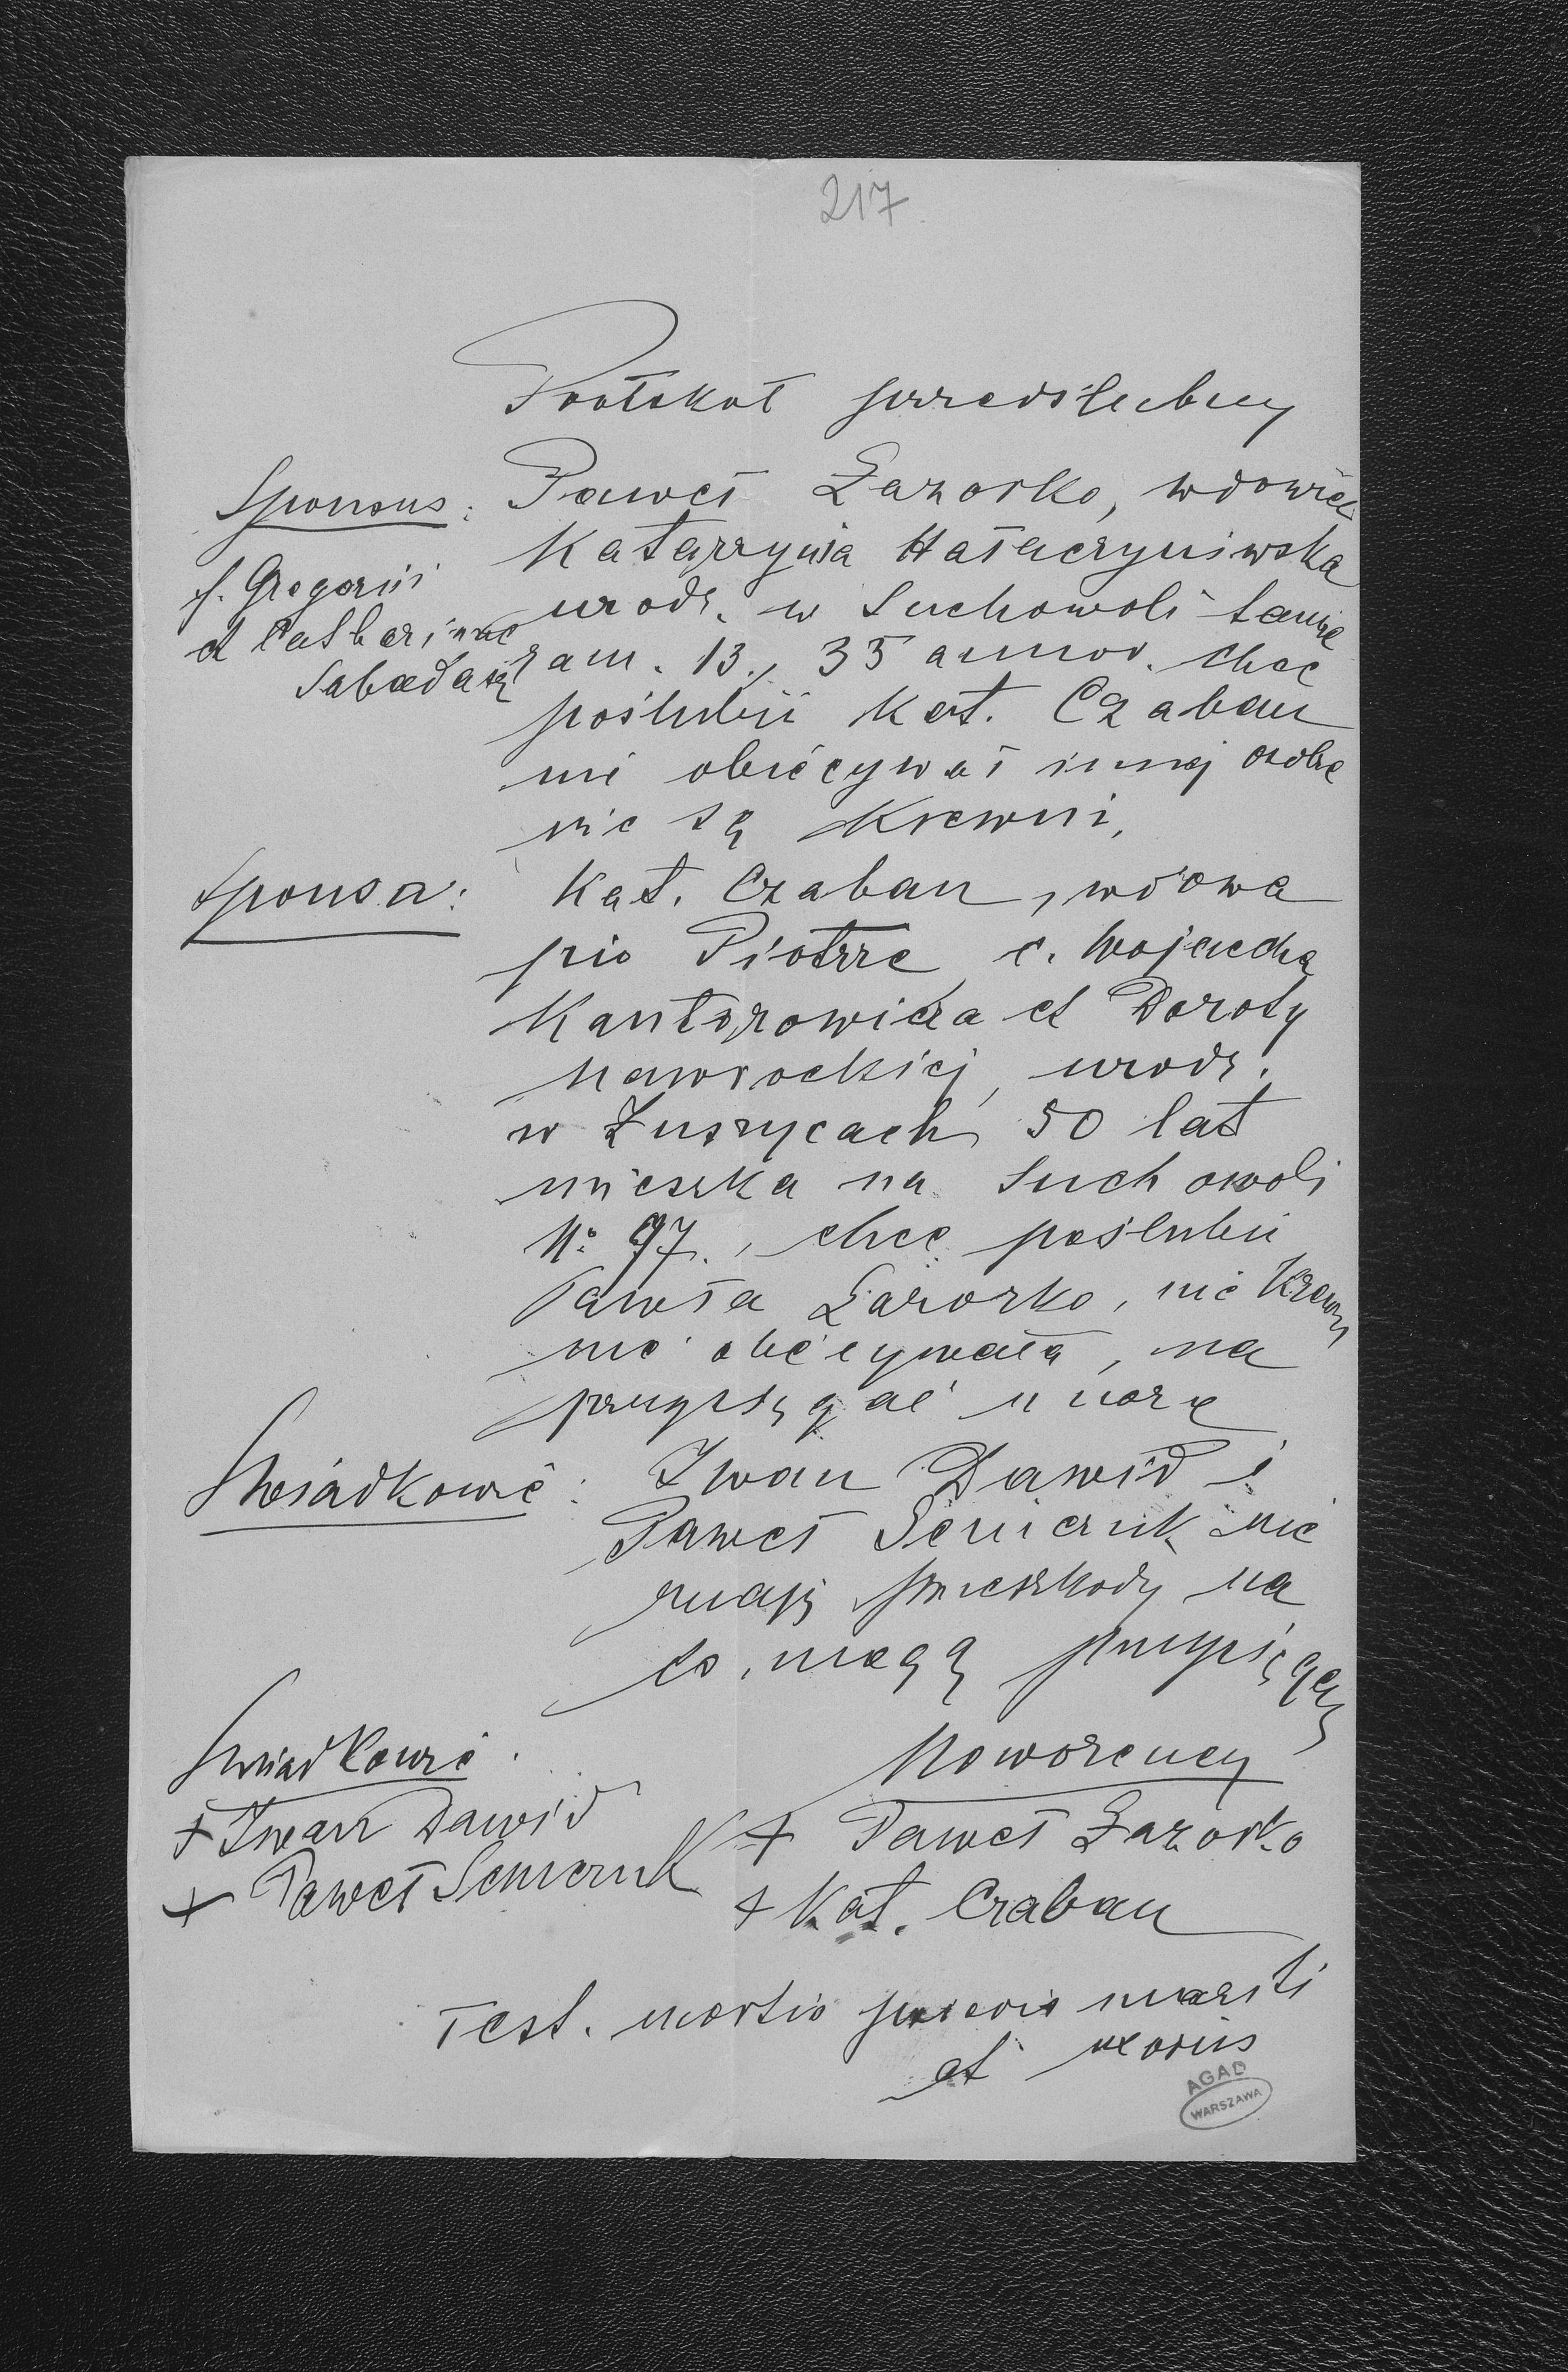 217
Protokoł przedślubny
Sponsus: Paweł Łazorko, wdowiec
Katarzyna Hałaczyniwska
f. Gregorii
urodz. w Suchowoli tamże
et Catharinae
zam. 13., 35 annor. chce
Sabadasz
poślubić Kat. Czaban
nie obiecywał innej osobie
nie są Krewni,
Sponsa: Kat. Czaban, wdowa
pio Piotrze c. Wojciecha
Kantorowicza et Doroty
Nawrockiej, urodz.
w Zuszycach 50 lat
mieszka na Suchowoli
No 97., chce poślubić
Pawła Łazorko, nie Krewny
nie obiecywała, na
przysięgać może
Świadkowie: Iwan Dawid i
Paweł Semczuk nie
znają przeszkody na
to, mogą przysięgać
Świadkowie. Nowożeńcy
+ Iwan Dawid
+ Paweł Łazorko
+ Paweł Semczuk
+ Kat. Czaban
Test. mortis prioris mariti
et uxoris
AGAD
WARSZAWA